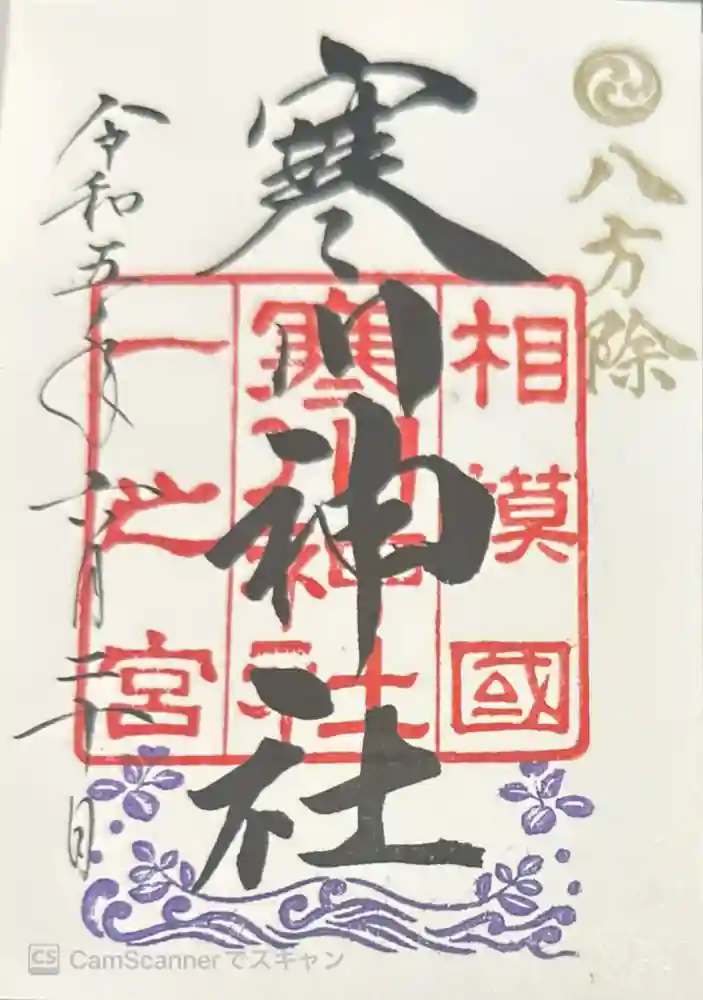 八方除
寒川神社
相模國
寒川神社
一之宮
令和五年六月二十日
CS CamScannerでスキャン